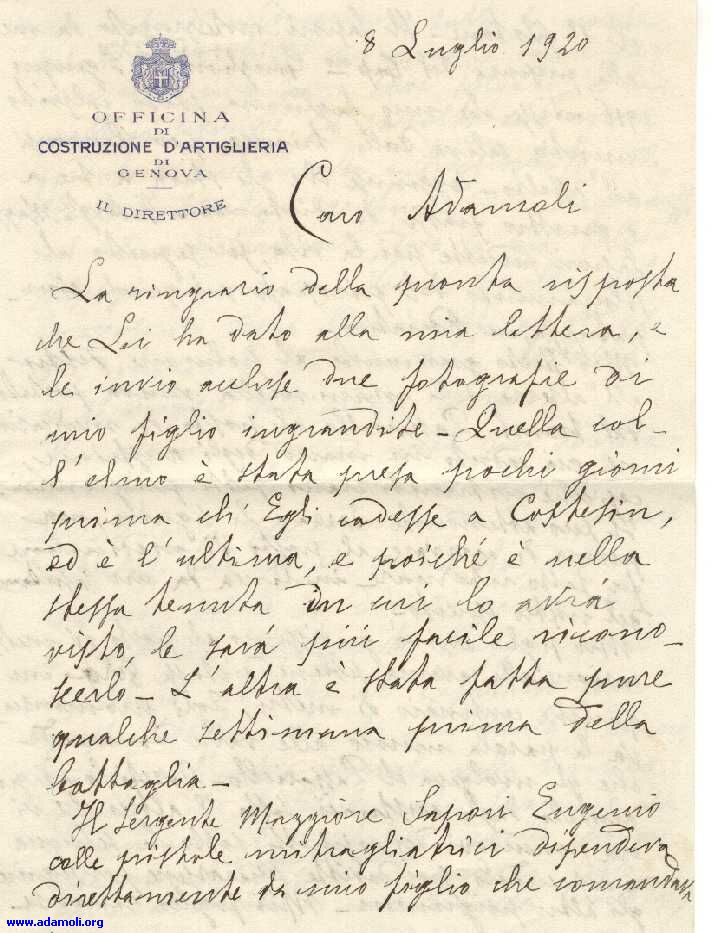 8 Luglio 1920
OFFICINA
DI
COSTRUZIONE D'ARTIGLIERIA
DI
GENOVA
IL DIRETTORE
Caro Adamoli
La ringrazio della pronta risposta
che Lei ha dato alla mia lettera, e
le invio accluse due fotografie di
mio figlio ingrandite - Quella col-
l'elmo è stata presa pochi giorni
prima ch'Egli cadesse a Costesin,
ed è l'ultima, e poiché è nella
stessa tenuta in cui lo avrà
visto, le sarà più facile ricono-
scerlo - L'altra è stata fatta pure
qualche settimana prima della
battaglia -
Il Sergente Maggiore Sapori Eugenio
colle pistole mitragliatrici dipendeva
direttamente da mio figlio che comandava
www.adamoli.org